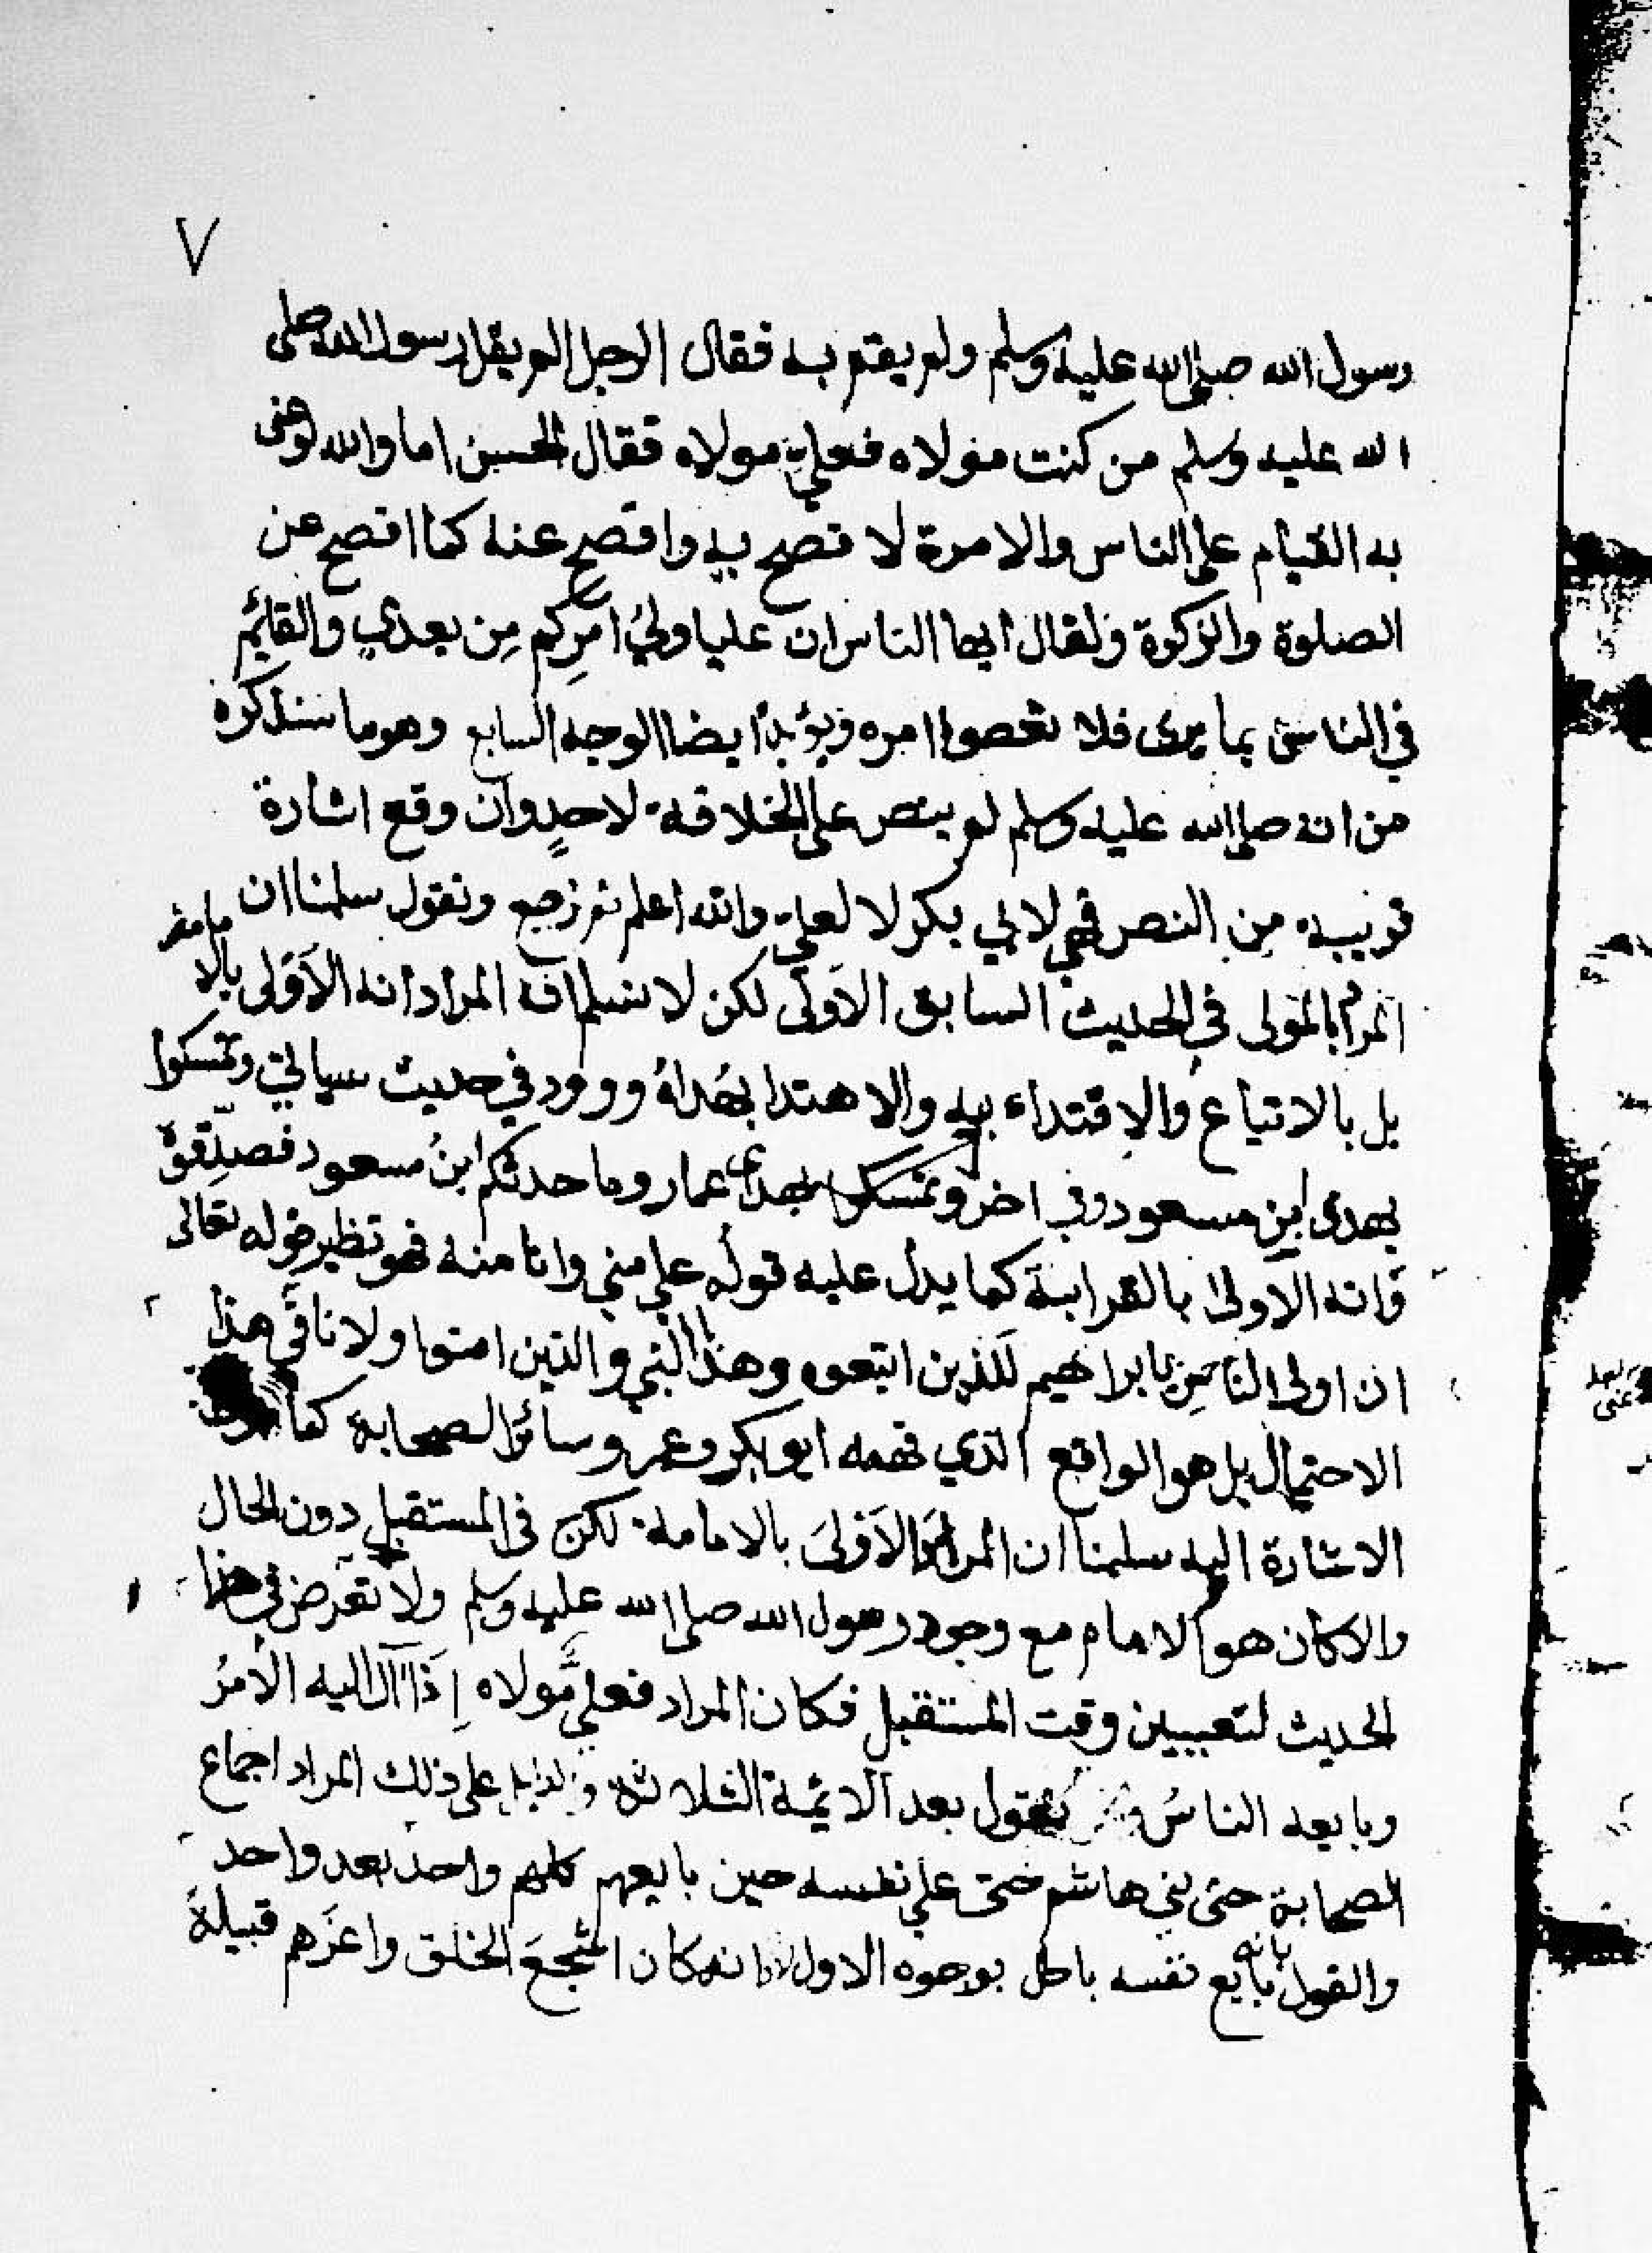 ٧
رسول الله صلى الله عليه وسلم ولم يقم به فقال الرجل الم يقل رسول الله صلى
الله عليه وسلم من كنت مولاه فعلي مولاه فقال الحسن اما والله لو عنى
به القيام على الناس والامرة لا فصح به وافصح عنه كما افصح عن
الصلوة والزكوة ولقال ايها الناس ان عليا ولي امركم من بعدي والقائم
في الناس بما يرى فلا تعصوا امره ويؤيد ايضا الوجه السابع وهو ما سنذكره
من انه صلى الله عليه وسلم لم ينص على الخلافة لاحد وان وقع اشارة
قريبة من النص فهي لابي بكر لا لعلي والله اعلم ثم نرجع ونقول سلمنا ان
المراد بالمولى في الحديث السابق الاولى لكن لا نسلم ان المراد انه الاولى بالامامة
بل بالاتباع والاقتداء به والاهتدا بهداه وورد في حديث سياتي وتمسكوا
بهدى ابن مسعود وفي اخر وتمسكوا بهدى عمار وما حدثكم ابن مسعود فصدقوه
وانه الاولى بالقرابة كما يدل عليه قوله علي مني وانا منه فهو نظير قوله تعالى
ان اولى الناس بابراهيم للذين اتبعوه وهذا النبي والذين امنوا ولا نافي هذا
الاحتمال بل هو الواقع الذي فهمه ابو بكر وعمر وسائر الصحابة كما
الاشارة اليه سلمنا ان المراد الاولى بالامامة لكن في المستقبل دون الحال
والا كان هو الامام مع وجود رسول الله صلى الله عليه وسلم ولا تعرض في هذا
الحديث لتعيين وقت المستقبل فكان المراد فعلي مولاه إذا آل اليه الامر
وبايعه الناس نقول بعد الائمة الثلاثة والدليل على ذلك المراد اجماع
الصحابة حتى بني هاشم حتى علي نفسه حين بايعهم كلهم واحد بعد واحد
والقول بانه بايع نفسه باطل بوجوه الاول انه كان اشجع الخلق واعزهم قبيلة